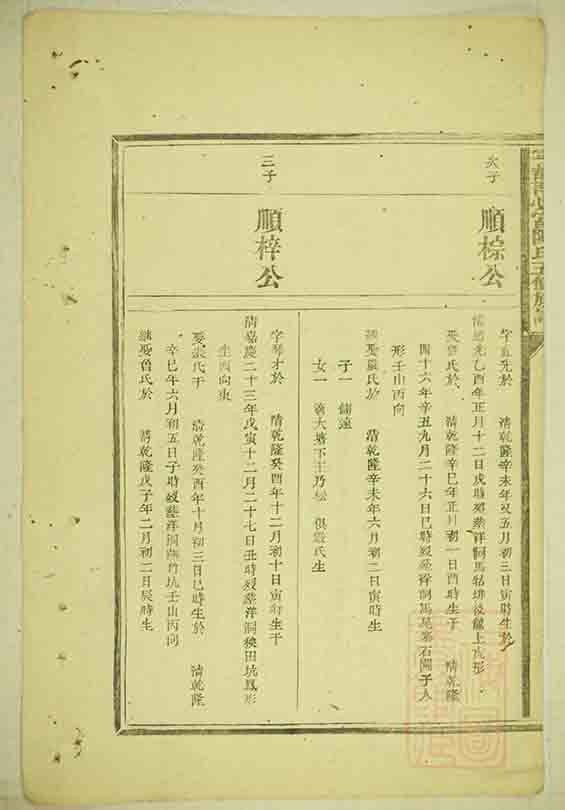 次子
順棕公
字直先於 清乾隆辛未年又五月初三日寅時生於
清道光乙酉年正月十二日戌時歿葬洋洞馬牯 後龍上戌形
娶曾氏於 清乾隆辛巳年正月初一日酉時生于 清乾隆
四十六年辛丑九月二十六日巳時歿葬 洞馬尾寨石闕子人
形壬山丙向
繼娶嚴氏於 清乾隆辛未年六月初二日寅時生
子一 遠
女一 適大塘下王乃松 俱嚴氏生
三子
順梓公
字琴才於 清乾隆癸酉年十二月初十日寅時生于
清嘉慶二十三年戊寅十二月二十七日丑時歿葬洋洞秧田坑鳳形
坐西向東
娶張氏于 清乾隆癸酉年十月初三日巳時生於 清乾隆
辛巳年六月初五日子時歿葬洋洞 竹坑壬山丙向
繼娶曾氏於 清乾隆戊子年二月初二日辰時生